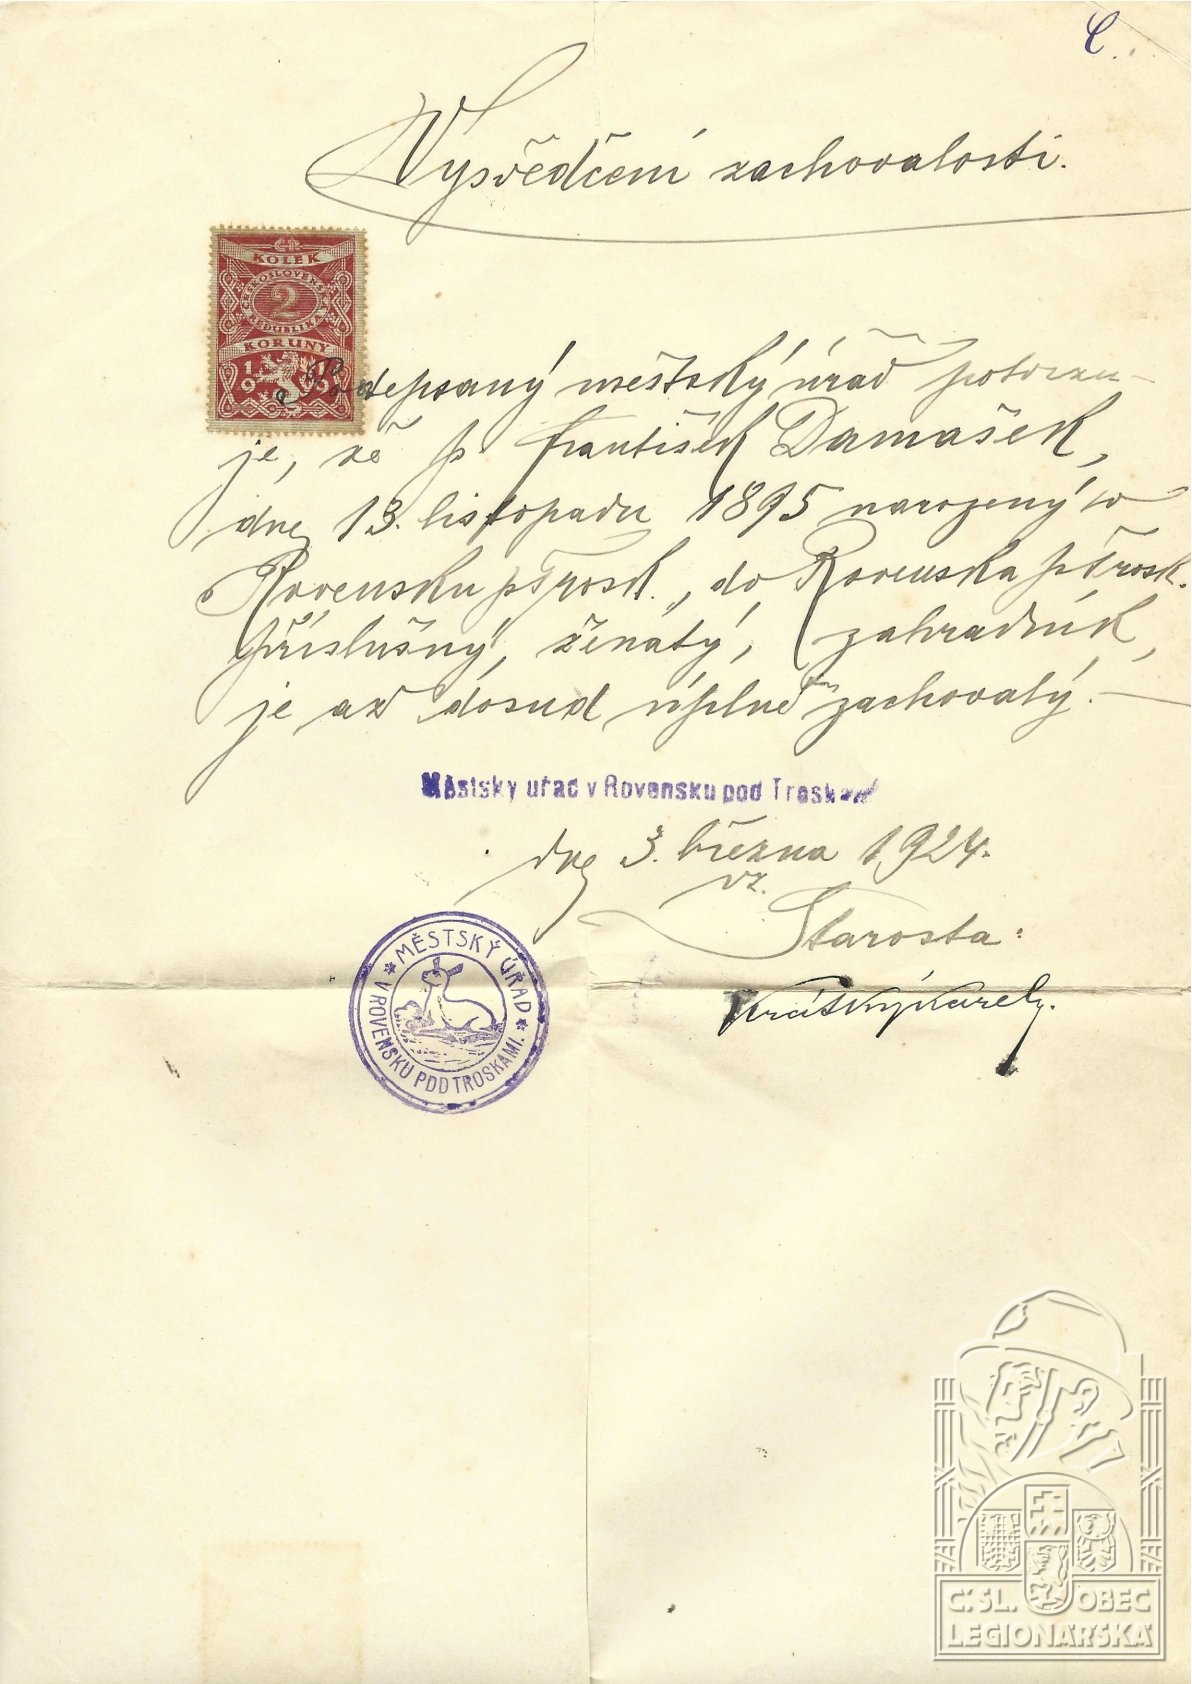 C.
Vysvědčení zachovalosti.
ČR
KOLEK
ČESKOSLOVENSKÁ
2
REPUBLIKA
KORUNY
19
Podepsaný městský úřad potvrzu-
je, že p. František Damašek,
dne 13. listopadu 1895 narozený v
Rovensku p Trosk., do Rovenska p Trosk.
příslušný, ženatý, zahradník,
je až dosud úplně zachovalý. —
Městsky uřad v Rovensku pod Troskami
dne 3. března 1924.
vz.
Starosta:
Krátký Karel
MĚSTSKÝ ÚŘAD
V ROVENSKU POD TROSKAMI.
Č. SL. OBEC
LEGIONÁŘSKÁ